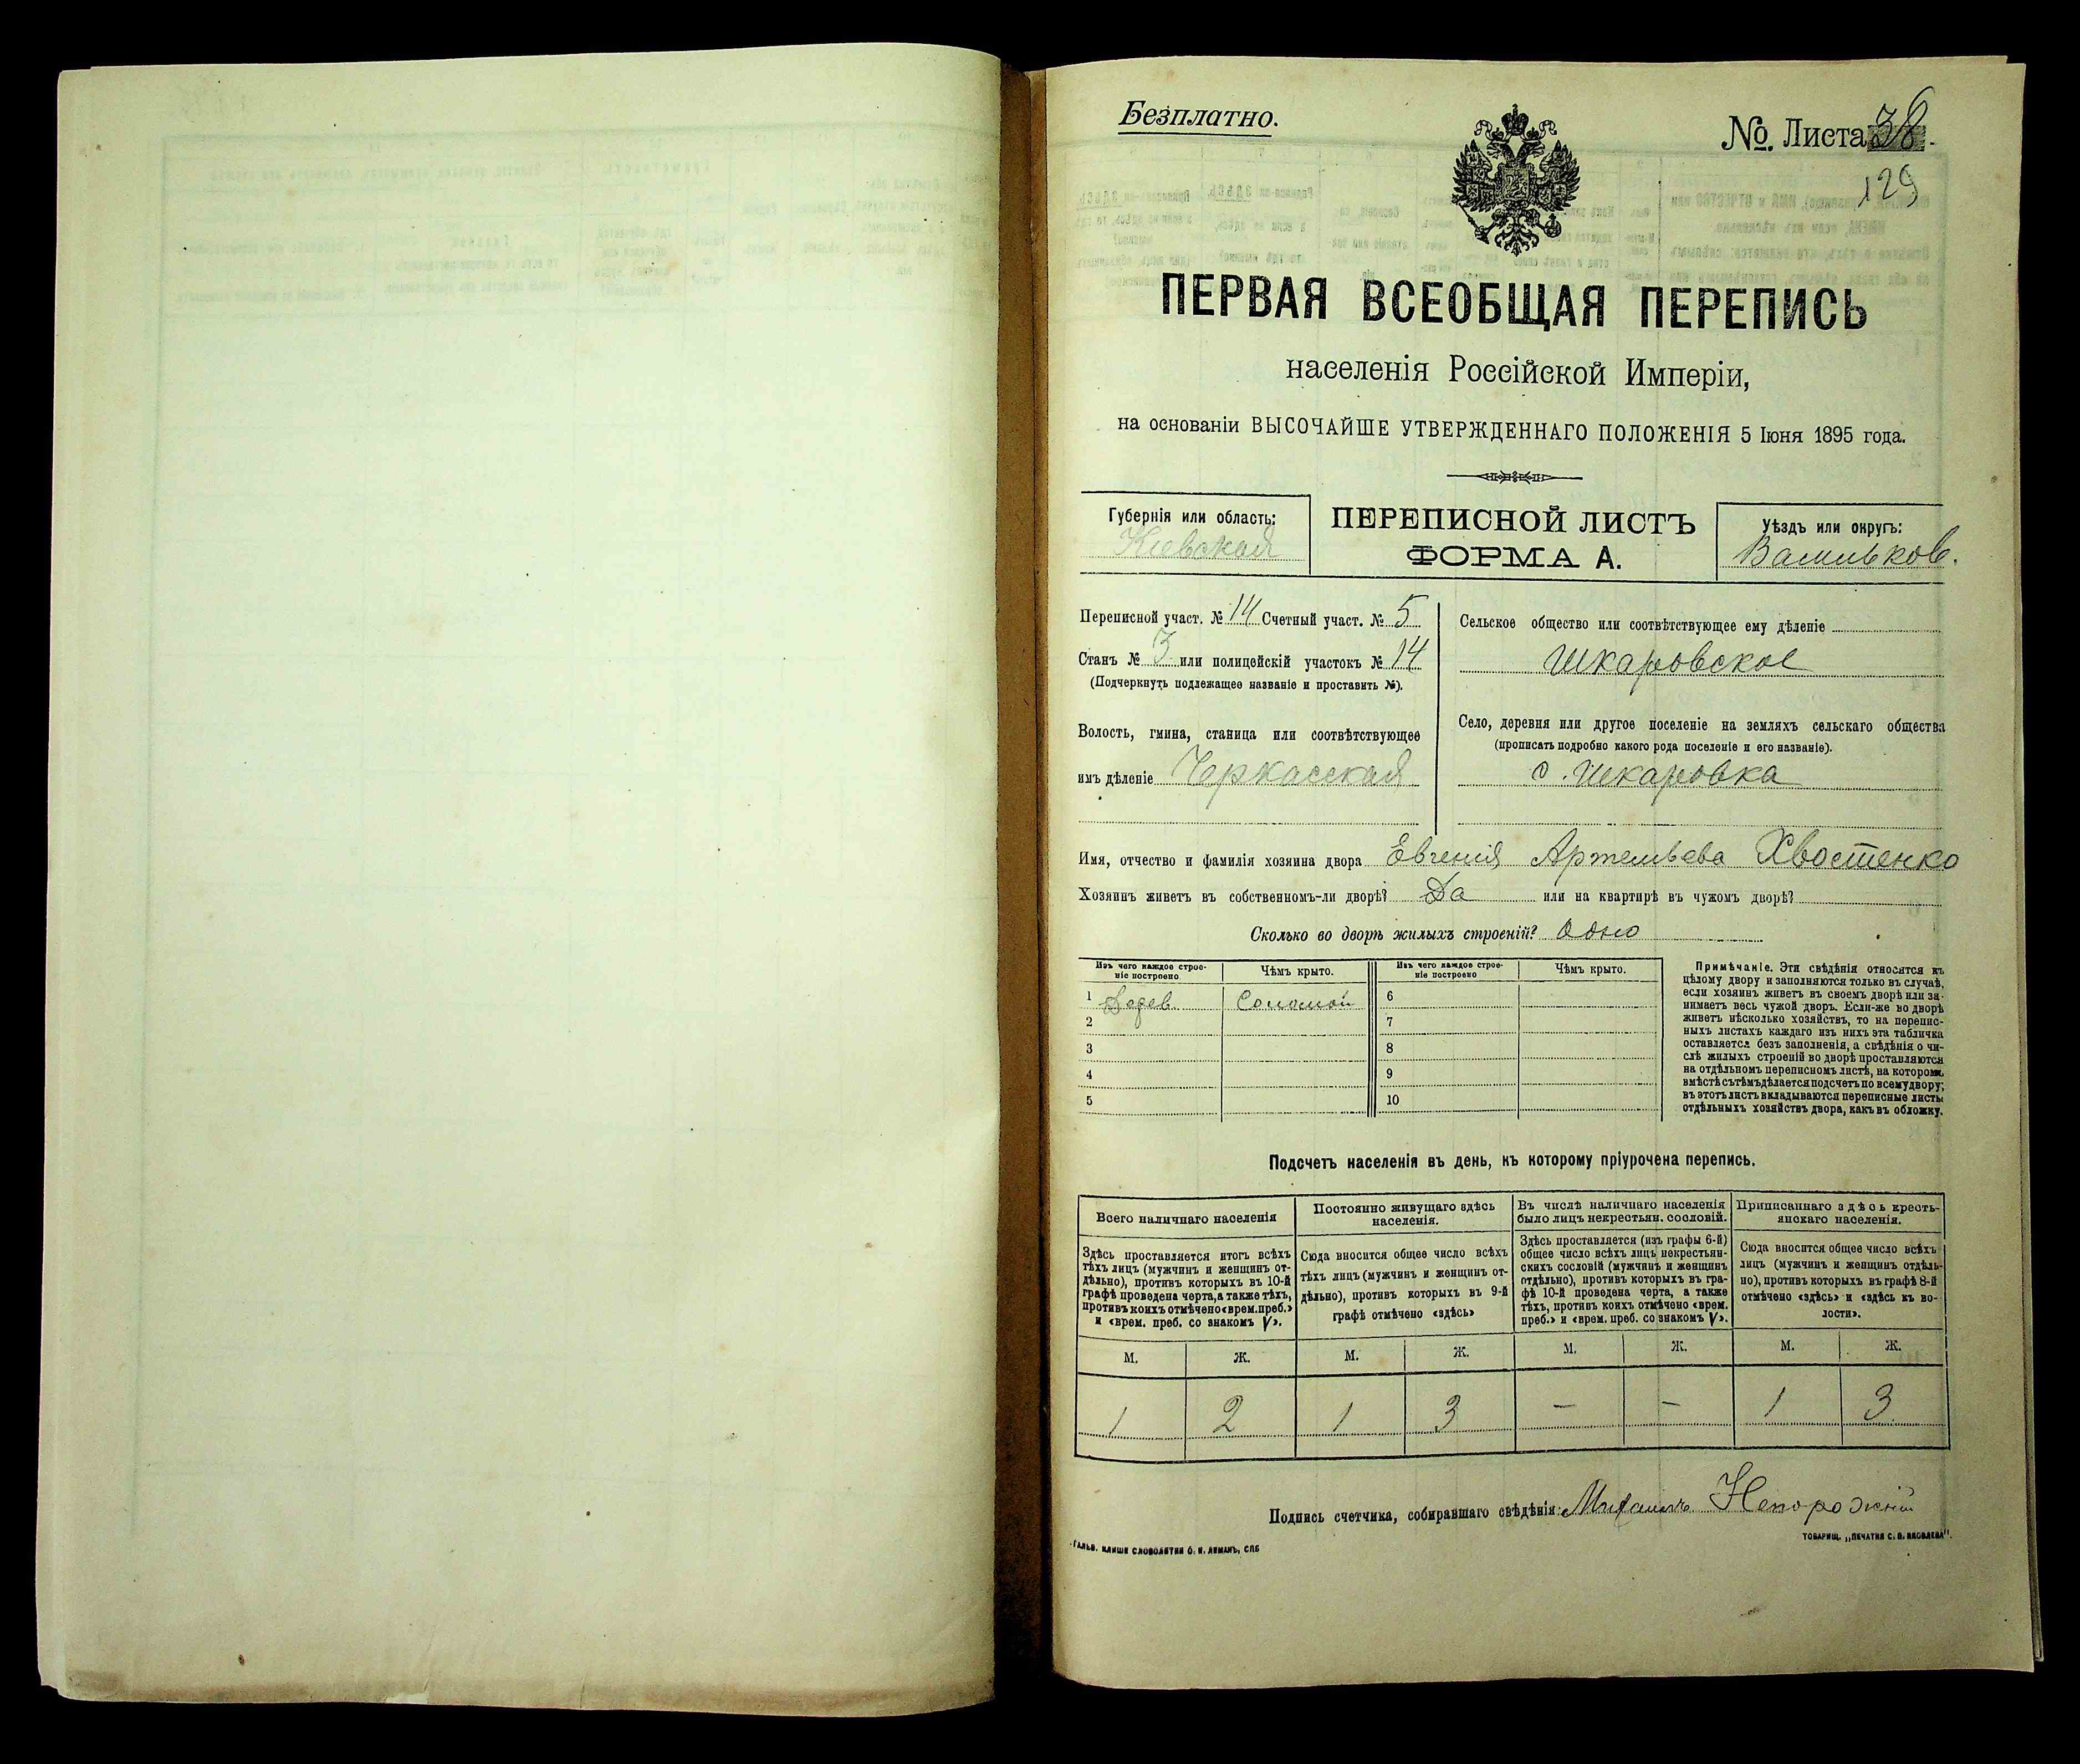 Безплатно.
№. Листа 38
129
ПЕРВАЯ ВСЕОБЩАЯ ПЕРЕПИСЬ
населенія Россійской Имперіи,
на основаніи ВЫСОЧАЙШЕ УТВЕРЖДЕННАГО ПОЛОЖЕНІЯ 5 Іюня 1895 года.
Губернія или область:
Кіевская
ПЕРЕПИСНОЙ ЛИСТЪ
ФОРМА А.
Уѣздъ или округъ:
Васильков.
Переписной участ. № 14 Счетный участ. № 5
Станъ № 3 или полицейскій участокъ № 14
(Подчеркнуть подлежащее названіе и проставить №).
Волость, гмина, станица или соотвѣтствующее
имъ дѣленіе Черкасская
Сельское общество или соотвѣтствующее ему дѣленіе
Шкаровское
Село, деревня или другое поселеніе на земляхъ сельскаго общества
(прописать подробно какого рода поселеніе и его названіе).
с. Шкаровка
Имя, отчество и фамилія хозяина двора Евгенія Артемьева Хвостенко
Хозяинъ живетъ въ собственномъ-ли дворѣ? Да или на квартирѣ въ чужомъ дворѣ?
Сколько во дворѣ жилыхъ строеній? Одно
Изъ чего каждое строе-
ніе построено
Чѣмъ крыто.
Изъ чего каждое строе-
ніе построено
Чѣмъ крыто.
1 Дерев. Соломой 6
2 7
3 8
4 9
5 10
Примѣчаніе. Эти свѣдѣнія относятся къ
цѣлому двору и заполняются только въ случаѣ,
если хозяинъ живетъ въ своемъ дворѣ или за-
нимаетъ весь чужой дворъ. Если-же во дворѣ
живетъ нѣсколько хозяйствъ, то на перепис-
ныхъ листахъ каждаго изъ нихъ эта табличка
оставляется безъ заполненія, а свѣдѣнія о чи-
слѣ жилыхъ строеній во дворѣ проставляются
на отдѣльномъ переписномъ листѣ, на которомъ
вмѣстѣ съ тѣмъ дѣлается подсчетъ по всему двору;
въ этотъ листъ вкладываются переписные листы
отдѣльныхъ хозяйствъ двора, какъ въ обложку.
Подсчетъ населенія въ день, къ которому пріурочена перепись.
Всего наличнаго населенія
Здѣсь проставляется итогъ всѣхъ
тѣхъ лицъ (мужчинъ и женщинъ от-
дѣльно), противъ которыхъ въ 10-й
графѣ проведена черта, а также тѣхъ,
противъ коихъ отмѣчено «врем. преб.»
и «врем. преб. со знакомъ V».
Постоянно живущаго здѣсь
населенія.
Сюда вносится общее число всѣхъ
тѣхъ лицъ (мужчинъ и женщинъ от-
дѣльно), противъ которыхъ въ 9-й
графѣ отмѣчено «здѣсь»
Въ числѣ наличнаго населенія
было лицъ некрестьян. сословій.
Здѣсь проставляется (изъ графы 6-й)
общее число всѣхъ лицъ некрестьян-
скихъ сословій (мужчинъ и женщинъ
отдѣльно), противъ которыхъ въ гра-
фѣ 10-й проведена черта, а также
тѣхъ, противъ коихъ отмѣчено «врем.
преб.» и «врем. преб. со знакомъ V».
Приписаннаго здѣсь кресть-
янскаго населенія.
Сюда вносится общее число всѣхъ
лицъ (мужчинъ и женщинъ отдѣль-
но), противъ которыхъ въ графѣ 8-й
отмѣчено «здѣсь» и «здѣсь къ во-
лости».
М. Ж. М. Ж. М. Ж. М. Ж.
1 2 1 3 – – 1 3
Подпись счетчика, собиравшаго свѣдѣнія: Михаилъ Непорожній
ГАЛЬВ. КЛИШЕ СЛОВОЛИТНИ О. И. ЛЕМАНЪ, СПБ
ТОВАРИЩ. „ПЕЧАТНЯ С. П. ЯКОВЛЕВА".